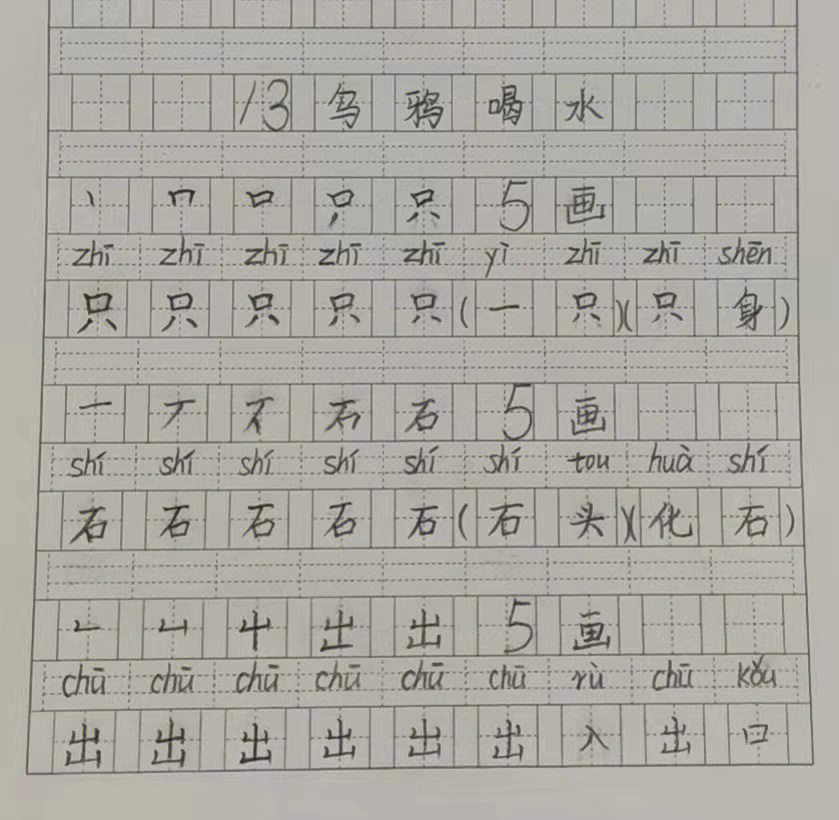 13 乌鸦喝水
丶 冂 口 尸 只 5画
zhī zhī zhī zhī zhī yì zhī zhī shēn
只 只 只 只 只 (一只)(只身)
一 丆 不 石 石 5画
shí shí shí shí shí shí tou huà shí
石 石 石 石 石 (石头)(化石)
𠃊 凵 屮 出 出 5画
chū chū chū chū chū chū rù chū kǒu
出 出 出 出 出 出 入 出 口